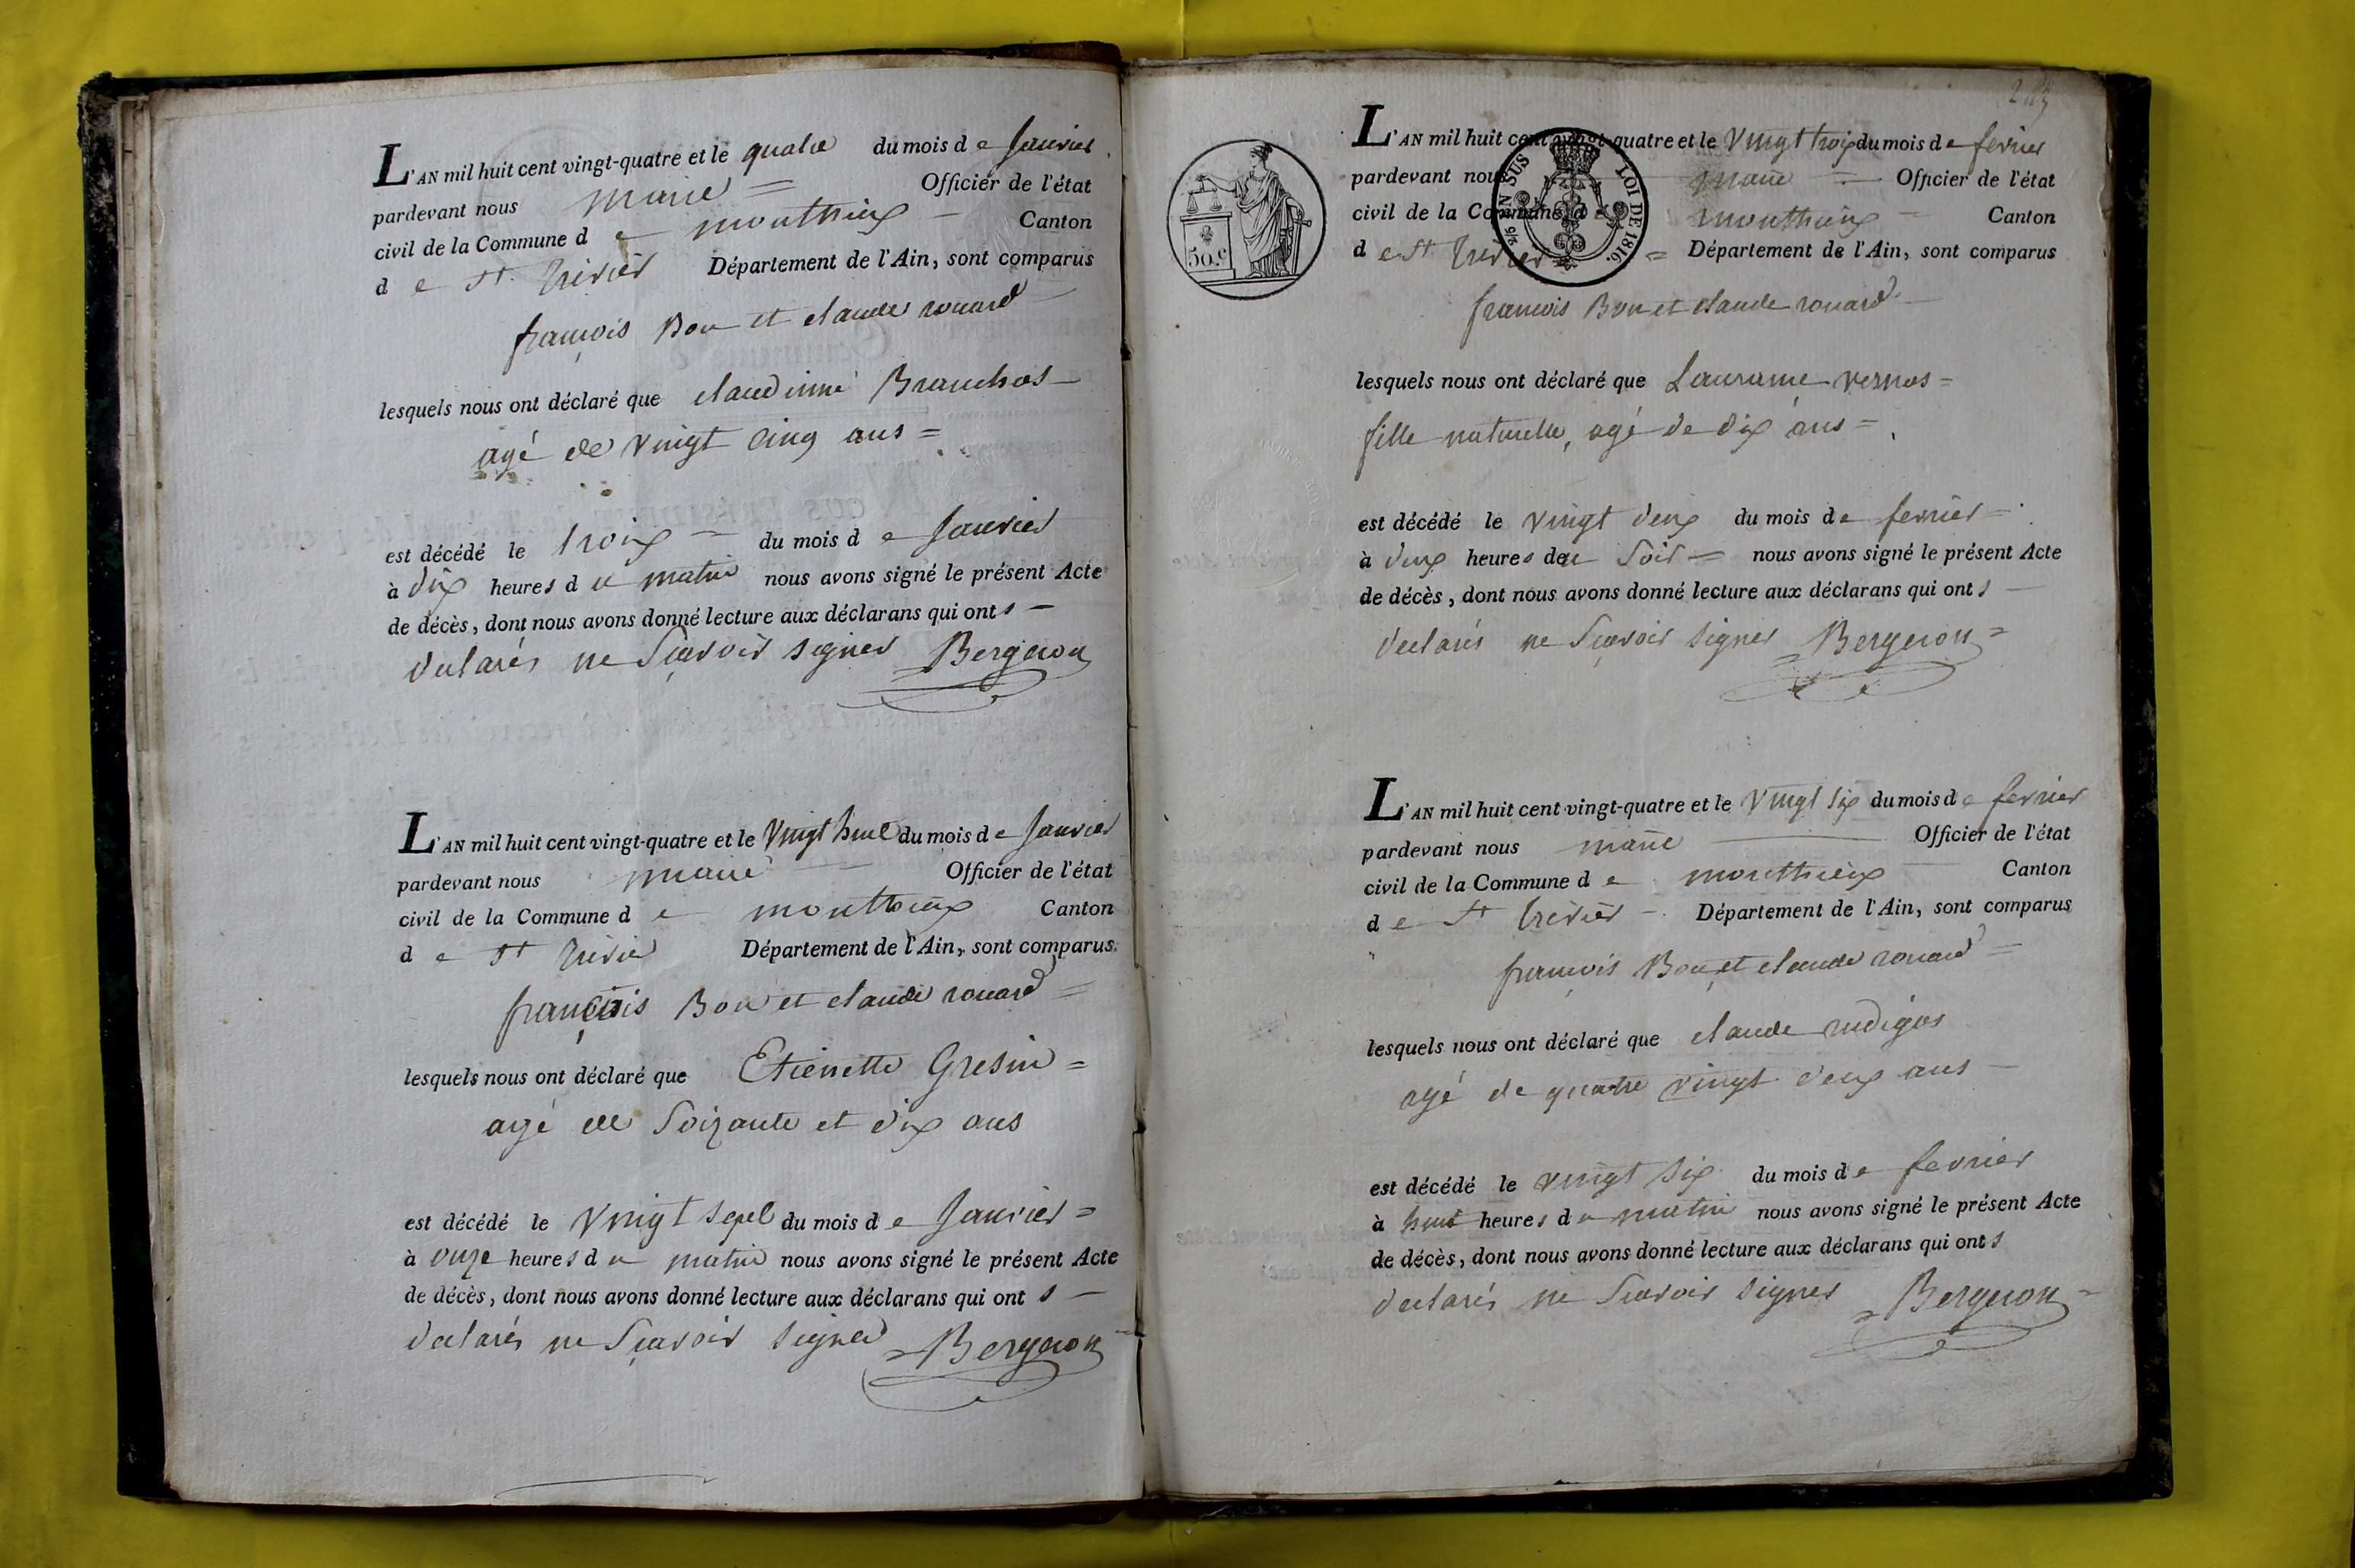 L'AN mil huit cent vingt-quatre et le quatre du mois d e janvier
pardevant nous maire = Officier de l'état
civil de la Commune d e monthieux – Canton
d e St trivier Département de l'Ain, sont comparus
françois Bon et claude rouard –
lesquels nous ont déclaré que claudinne Branchas –
agé de vingt cinq ans =
est décédé le troix = du mois d e janvier
à dix heures d u matin nous avons signé le présent Acte
de décès, dont nous avons donné lecture aux déclarans qui ont s –
declarés ne sçavoir signer Bergeron
L'AN mil huit cent vingt-quatre et le vingt huit du mois d e janvier
pardevant nous maire – Officier de l'état
civil de la Commune d e monthieux Canton
d e St trivier Département de l'Ain, sont comparus
françois Bon et claude rouard =
lesquels nous ont déclaré que Etienette Gresin =
agé de soixante et dix ans
est décédé le vingt sept du mois d e janvier =
à onze heures d u matin nous avons signé le présent Acte
de décès, dont nous avons donné lecture aux déclarans qui ont s –
declarés ne sçavoir signer = Bergeron
L'AN mil huit cent vingt-quatre et le vingt trois du mois d e fevrier
pardevant nous maire = Officier de l'état
civil de la Commune d e monthieux – Canton
d e St trivier = Département de l'Ain, sont comparus
50.c
2/5 EN SUS LOI DE 1816.
françois Bon et claude rouard –
lesquels nous ont déclaré que vernas =
fille naturelle, agé de dix ans =
est décédé le vingt deux du mois de fevrier =
à deux heures du soir = nous avons signé le présent Acte
de décès, dont nous avons donné lecture aux déclarans qui ont s –
declarés ne sçavoir signer = Bergeron =
L'AN mil huit cent vingt-quatre et le vingt six du mois d e fevrier
pardevant nous maire — Officier de l'état
civil de la Commune d e monthieux — Canton
d e St trivier – Département de l'Ain, sont comparus
françois Bon et claude rouard =
lesquels nous ont déclaré que claude rudigos
agé de quatre vingt deux ans –
est décédé le vingt six du mois d e fevrier
à huit heures d u matin nous avons signé le présent Acte
de décès, dont nous avons donné lecture aux déclarans qui ont s
declarés ne sçavoir signer = Bergeron =